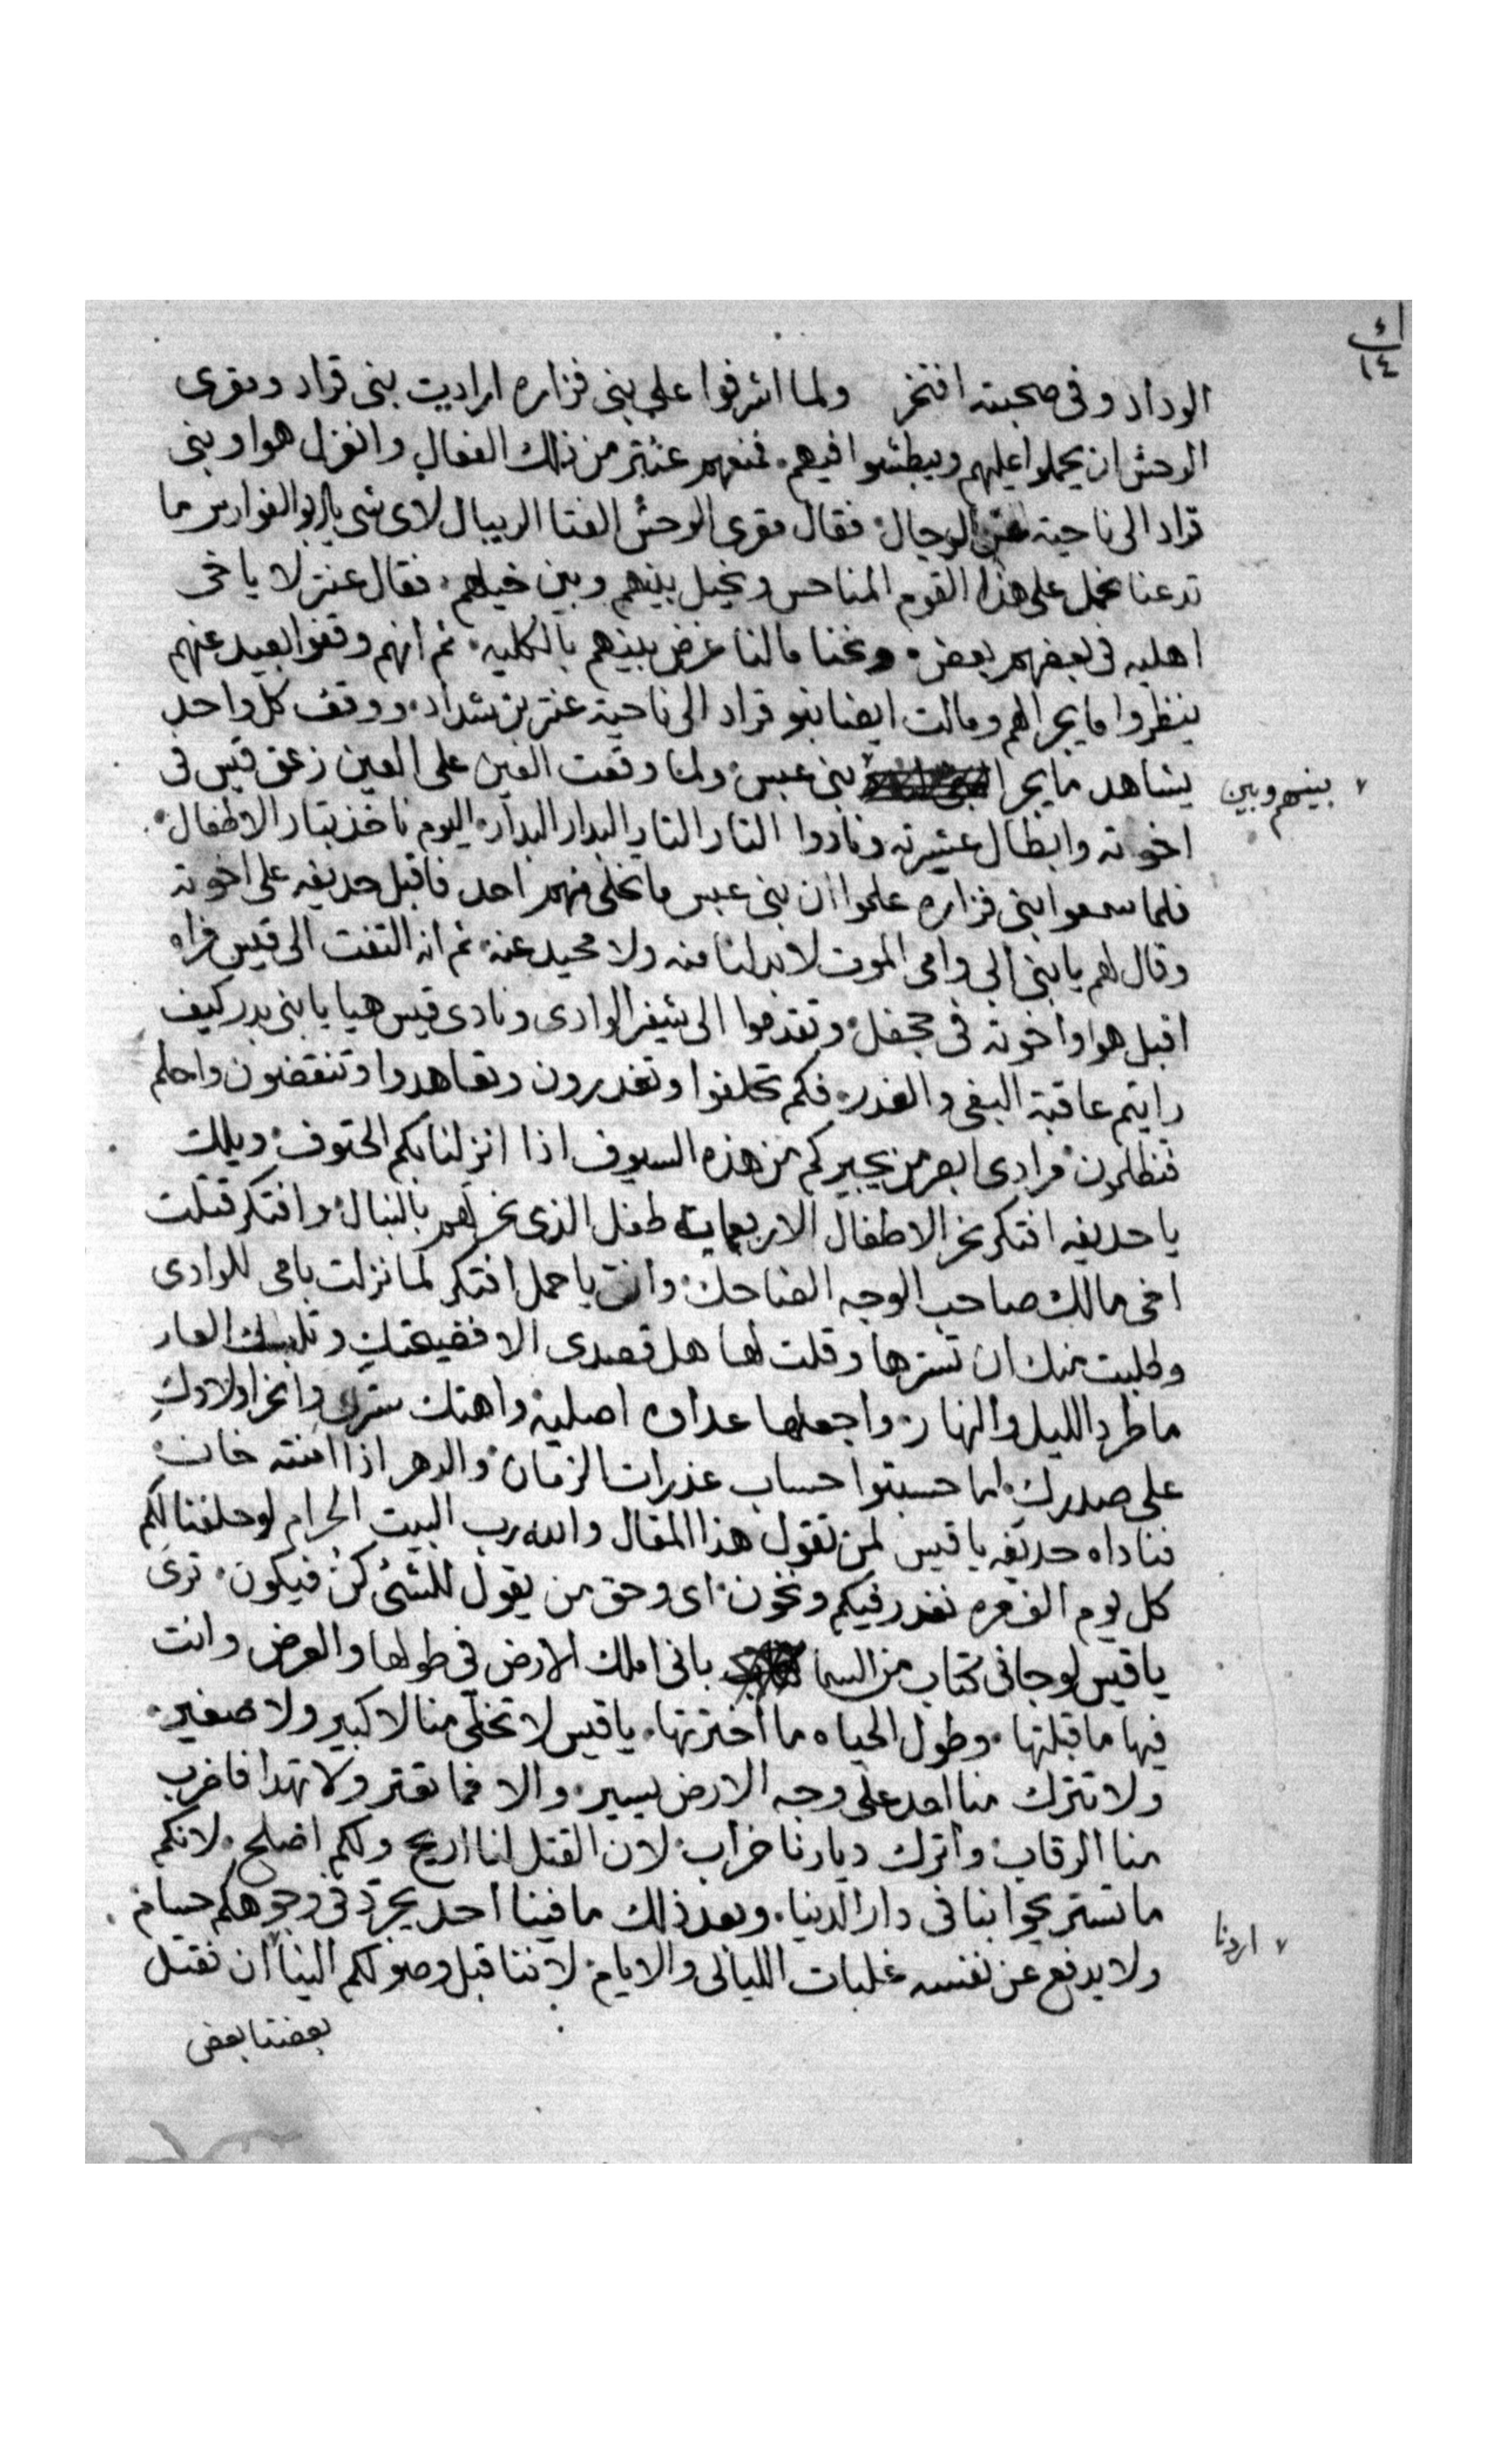 ١٤
الوداد وفى صحبته افتخر ولما اشرفوا على بنى فزاره ارادت بنى قراد ومقرى
الوحش ان يحملوا عليهم ويبطشوا فيهم. فمنعهم عنتر من ذلك الفعال وانعزل هوا وبنى
قراد الى ناحية عن الرجال فقال مقرى الوحش الفتا الريبال لاى شى يا ابو الفوارس ما
تدعنا نحمل على هذا القوم المناحس ونحيل بينهم وبين خيلهم. فقال عنتر لا ياخى
اهليه فى بعضهم بعض. ونحنا مالنا غرض بينهم بالكليه. ثم انهم وقفوا بعيد عنهم
ينظروا ما يجرا لهم ومالت ايضا بنو قراد الى ناحية عنتر بن شداد. ووقف كل واحد
يشاهد ما يجرا بنى عبس ولما وقعت العين على العين زعق قيس فى
بينهم وبين
اخوته وابطال عشيرته ونادوا التار التار البدار البدار. اليوم ناخذ بتار الاطفال.
فلما سمعوا بنى فزاره علموا ان بنى عبس ما تخلى منهم احد فاقبل حديفه على اخوته
وقال لهم يا بنى ابى وامى الموت لابد لنا منه ولا محيد عنه. ثم انه التفت الى قيس فراه
اقبل هوا واخوته فى جحفل وتقدموا الى شفير الوادى ونادى قيس هيا يا بنى بدر كيف
رايتم عاقبة البغى والغدر. فكم تحلفوا وتغدرون وتعاهدوا وتنقضون واحلم
فتظلمون فرادى ابصر من يجيركم من هذه السيوف اذا انزلنا بكم الحتوف ويلك
يا حديفه افتكر نحر الاطفال الاربعماية طفل الذى نحرلهم بالنبال وافتكر قتلت
اخى مالك صاحب الوجه الضاحك وانت يا حمل افتكر لما نزلت بامى للوادى
وطلبت منك ان تسترها وقلت لها هل قصدى الا فضيحتك وتلبسك العار
ما طرد الليل والنهار. واجعلها عداوه اصلية واهتك سترك وانحر اولادك
على صدرك. اما حسبتوا حساب غدرات الزمان والدهر اذا امنته خان
فناداه حديفه يا قيس لمن تقول هذا المقال والله رب البيت الحرام لو حلفنا لكم
كل يوم الف مره نغدر فيكم ونخون اى وحق من يقول للشئ كن فيكون. ترى
يا قيس لو جانى كتاب من السما بانى املك الارض فى طولها والعرض وانت
فيها ما قبلتها. وطول الحياه ما اخترتها. يا قيس لا تخلى منا لا كبير ولا صغير.
ولا تترك منا احد على وجه الارض يسير. والا فما تقتر ولا تهدا فاضرب
منا الرقاب واترك ديارنا خراب لان القتل لنا اريح ولكم اصلح. لانكم
ما تستريحوا بنا فى دار الدنيا. وبعد ذلك ما فينا احد يجرد فى وجوهكم حسام
ولا يدفع عن نفسه غلبات الليالى والايام لاننا قبل وصولكم الينا ان نقتل
اردنا
بعضنا بعض